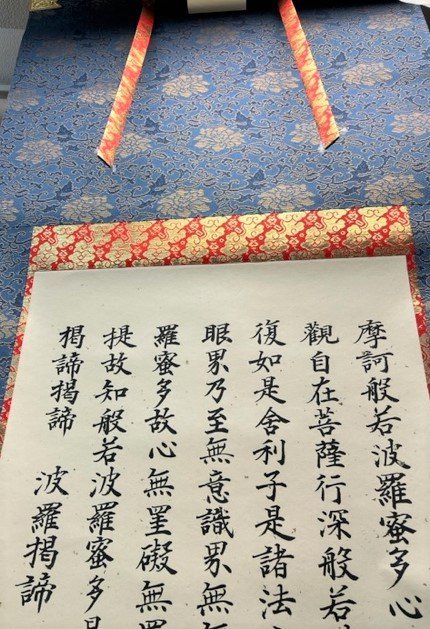 摩訶般若波羅蜜多心
觀自在菩薩行深般若
復如是舍利子是諸法
眼界乃至無意識界無無
羅蜜多故心無罣礙無
提故知般若波羅蜜多
揭諦揭諦 波羅揭諦